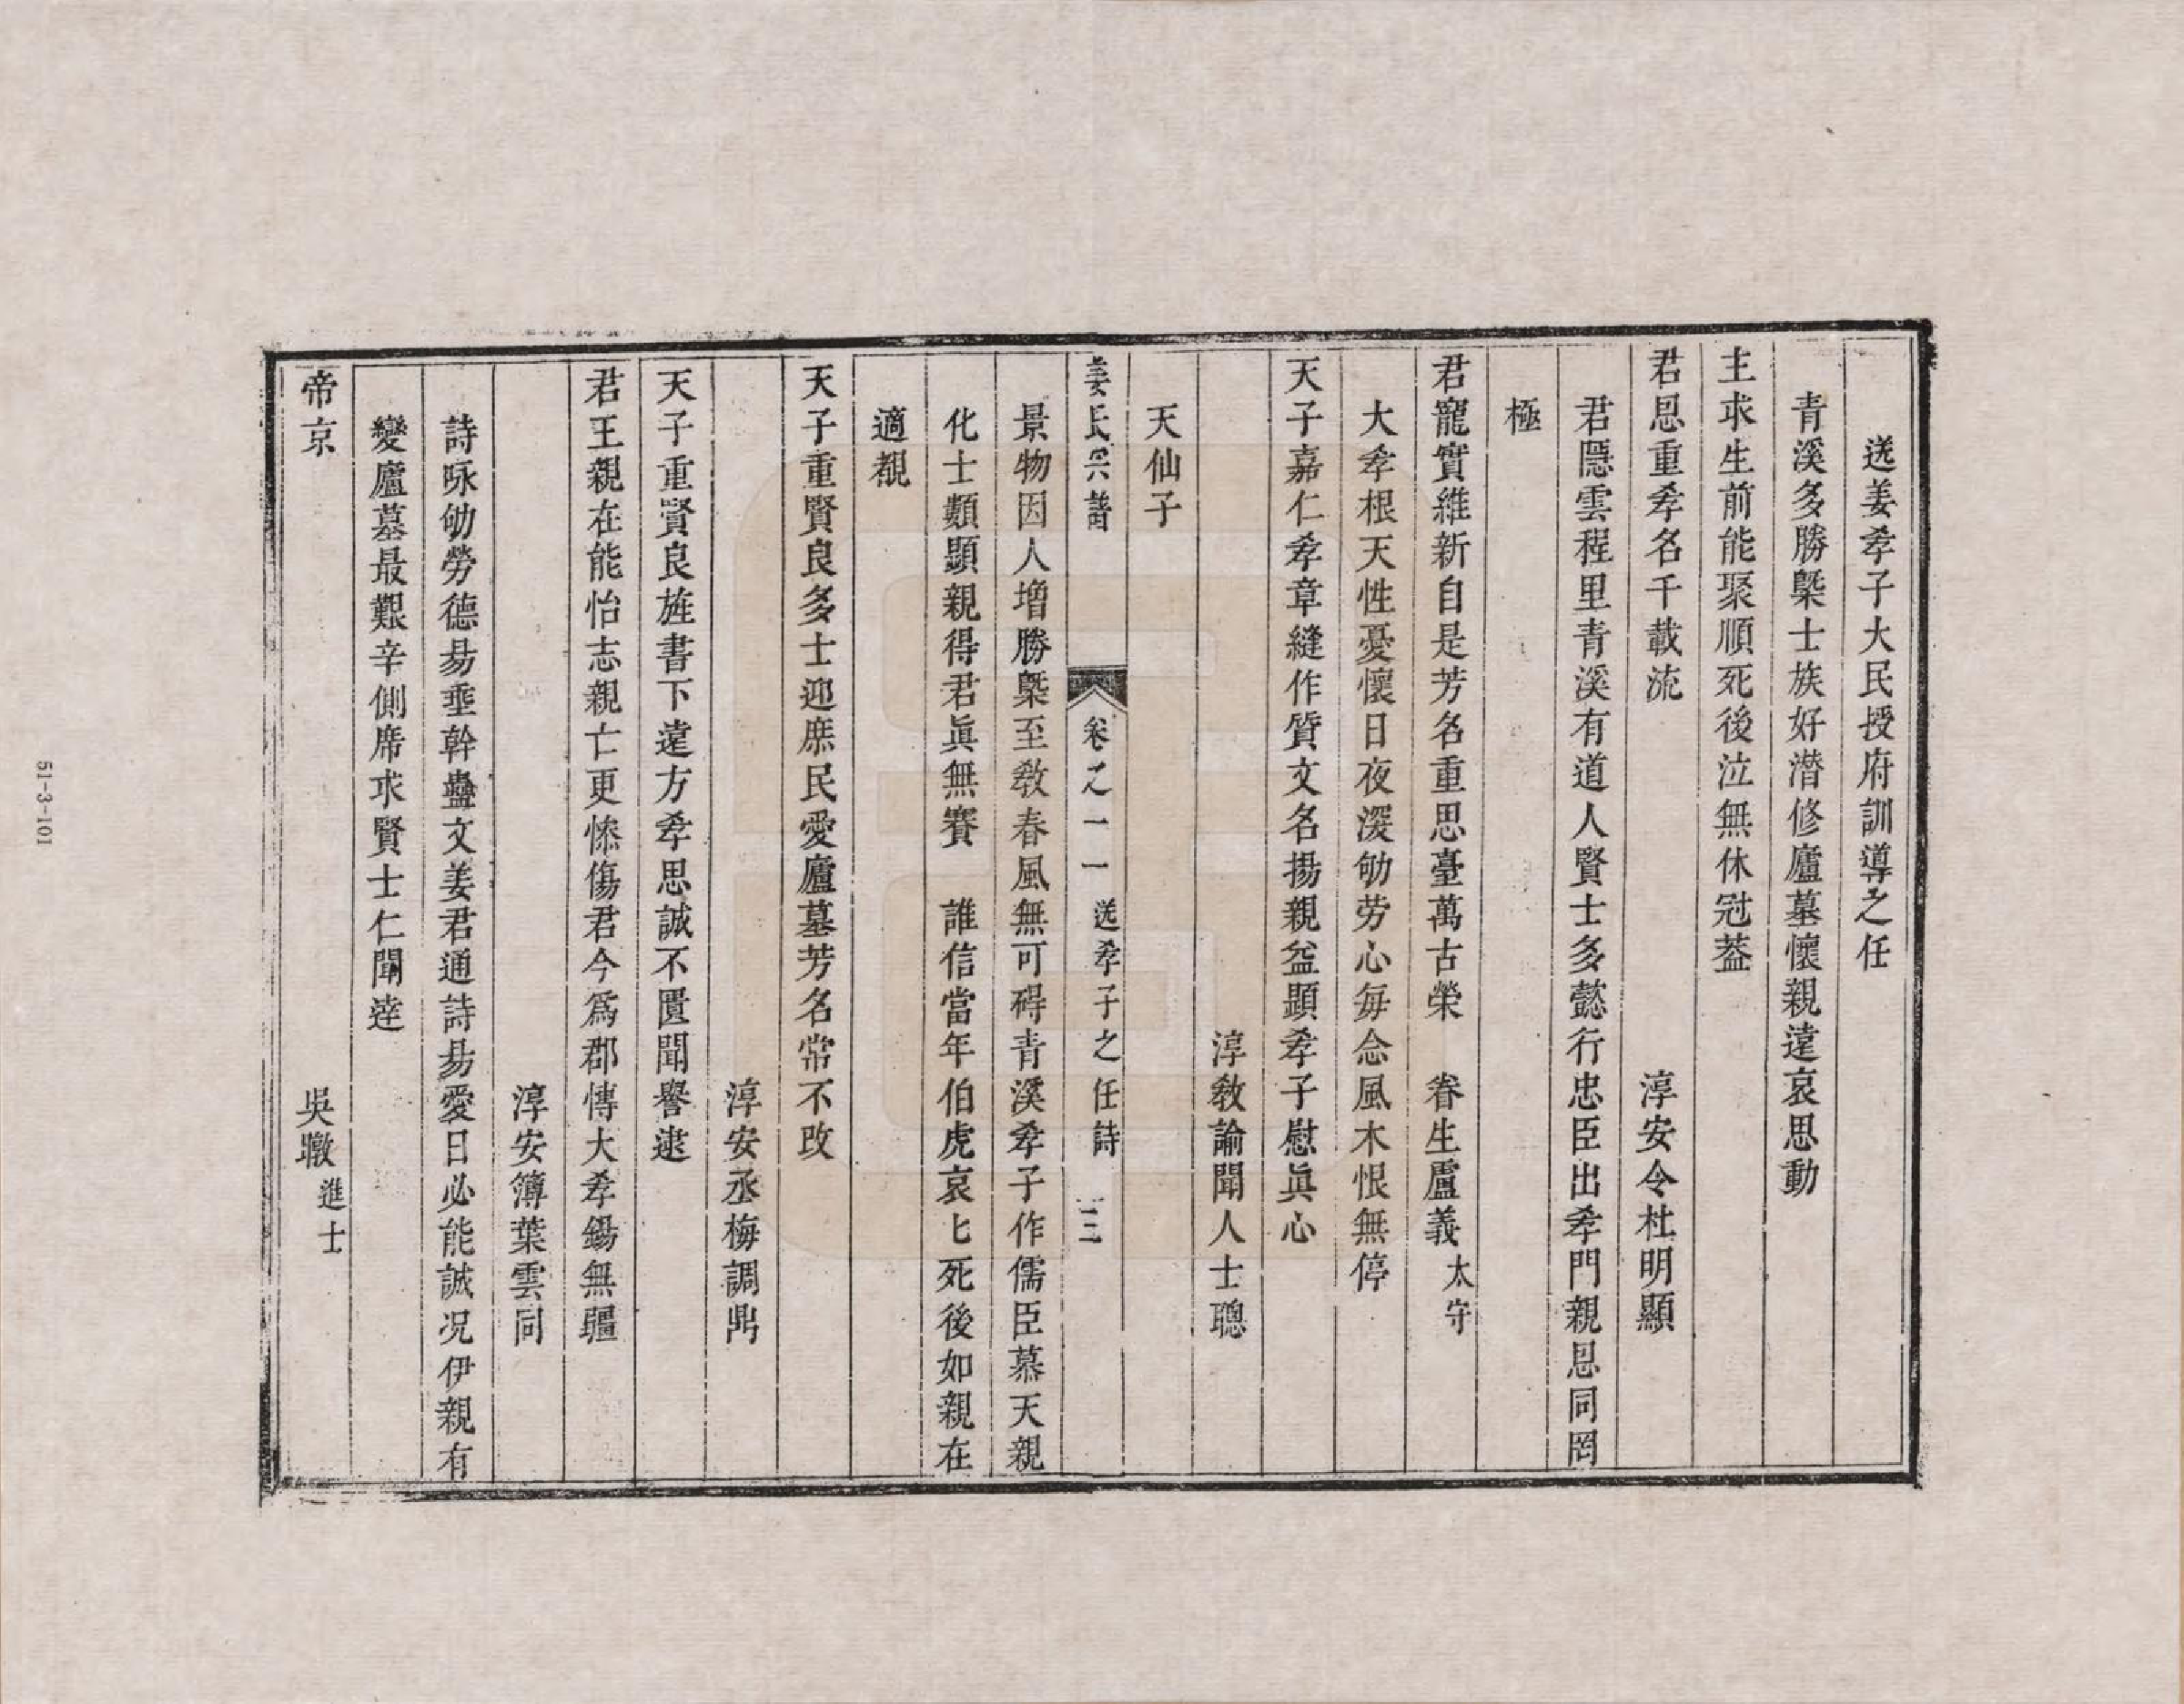 送姜孝子大民授府訓導之任
青溪多勝槩士族好潛修廬墓懷親遠哀思動
主求生前能聚順死後泣無休冠葢
君恩重孝名千載流　淳安令杜明顯
君隱雲程里青溪有道人賢士多懿行忠臣出孝門親恩同罔
極
君寵實維新自是芳名重思臺萬古榮　春生盧義太守
大孝根天性憂懷日夜深劬劳心每念風木恨無停
天子嘉仁孝章縫作質文名揚親益顯孝子慰眞心
淳教諭聞人士聰
天仙子
姜氏宗譜　卷之一一　送孝子之任詩　三
景物因人增勝槩至教春風無可碍青溪孝子作儒臣慕天親
化士類顯親得君眞無賽　誰信當年伯虎哀七死後如親在
適覩
天子重賢良多士迎庶民愛廬墓芳名常不改
淳安丞梅調鼎
天子重賢良旌書下遠方孝思誠不匱聞譽逮
君王親在能怡志親亡更慘傷君今爲郡傅大孝錫無疆
淳安簿葉雲同
詩咏劬勞德昜垂幹蠱文姜君通詩昜愛日必能誠况伊親有
變廬墓最艱辛側席求賢士仁聞達
帝京　吳璥進士
51-3-101